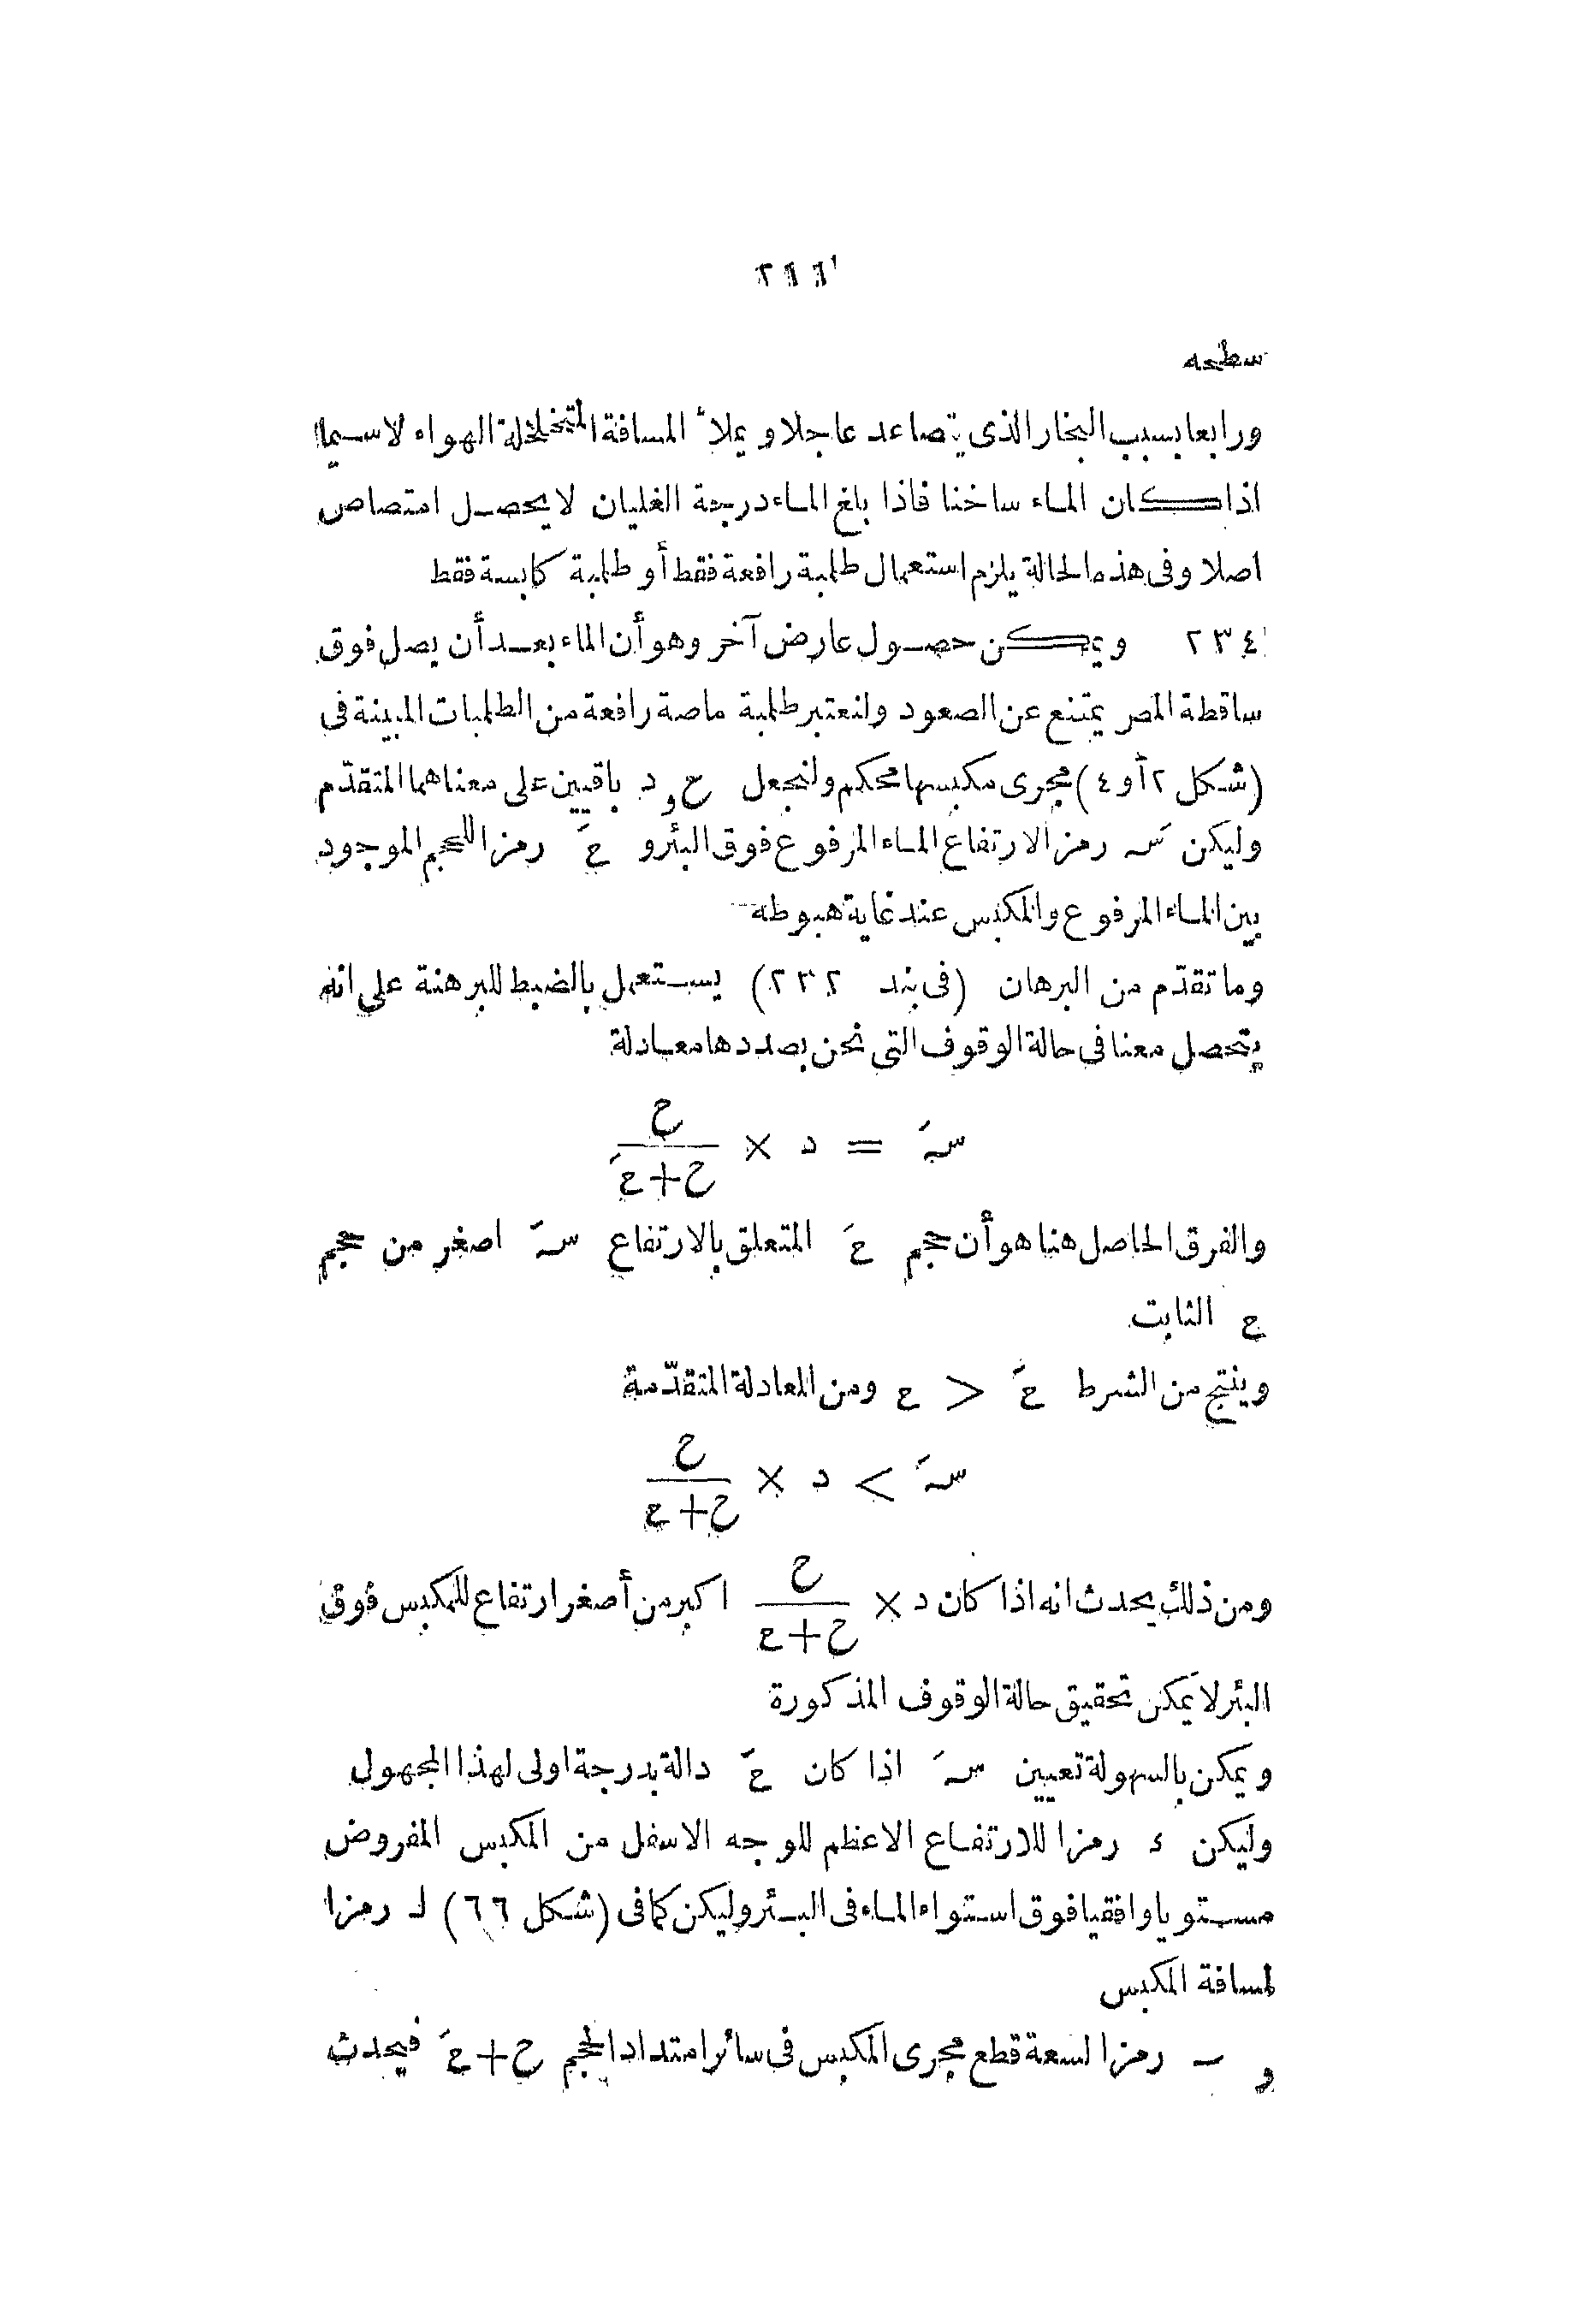 سطحه
ورابعا بسبب البخار الذى يتصاعد عاجلا ويملأ المسافة المتخلخلة الهواء لا سيما
اذا كان الماء ساخنا فاذا بلغ الماء درجة الغليان لا يحصل امتصاص
اصلا وفى هذه الحالة يلزم استعمال طلمبة رافعة فقط أو طلمبة كابسة فقط
٢٣٤ ويمكن حصول عارض آخر وهو أن الماء بعد أن يصل فوق
ساقطة الممر يمتنع عن الصعود ولنعتبر طلمبة ماصة رافعة من الطلمبات المبينة فى
(شكل ٢ أو ٤) مجرى مكبسها محكم ولنجعل ح و د باقيين على معناهما المتقدّم
وليكن سَہ رمزا لارتفاع الماء المرفوع فوق البئر و عَ رمزا للحجم الموجود
بين الماء المرفوع والمكبس عند غاية هبوطه
وما تقدّم من البرهان (فى بند ٢٣٢) يستعمل بالضبط للبرهنة على انه
يتحصل معنا فى حالة الوقوف التى نحن بصددها معادلة
سَہ = د × ح / (ح+عَ)
والفرق الحاصل هنا هو أن حجم عَ المتعلق بالارتفاع سَہ اصغر من حجم
ع الثابت
وينتج من الشرط عَ > ع ومن المعادلة المتقدّمة
سَہ < د × ح / (ح+ع)
ومن ذلك يحدث انه اذا كان د × ح / (ح+ع) اكبر من أصغر ارتفاع للمكبس فوق
البئر لا يمكن تحقيق حالة الوقوف المذكورة
ويمكن بالسهولة تعيين سَہ اذا كان عَ دالة بدرجة اولى لهذا المجهول
وليكن ء رمزا للارتفاع الاعظم للوجه الاسفل من المكبس المفروض
مستويا وافقيا فوق استواء الماء فى البئر وليكن كما فى (شكل ٦٦) لـ رمزا
لمسافة المكبس
و ى رمزا لسعة قطع مجرى المكبس فى سائر امتداد الحجم ح+عَ فيحدث